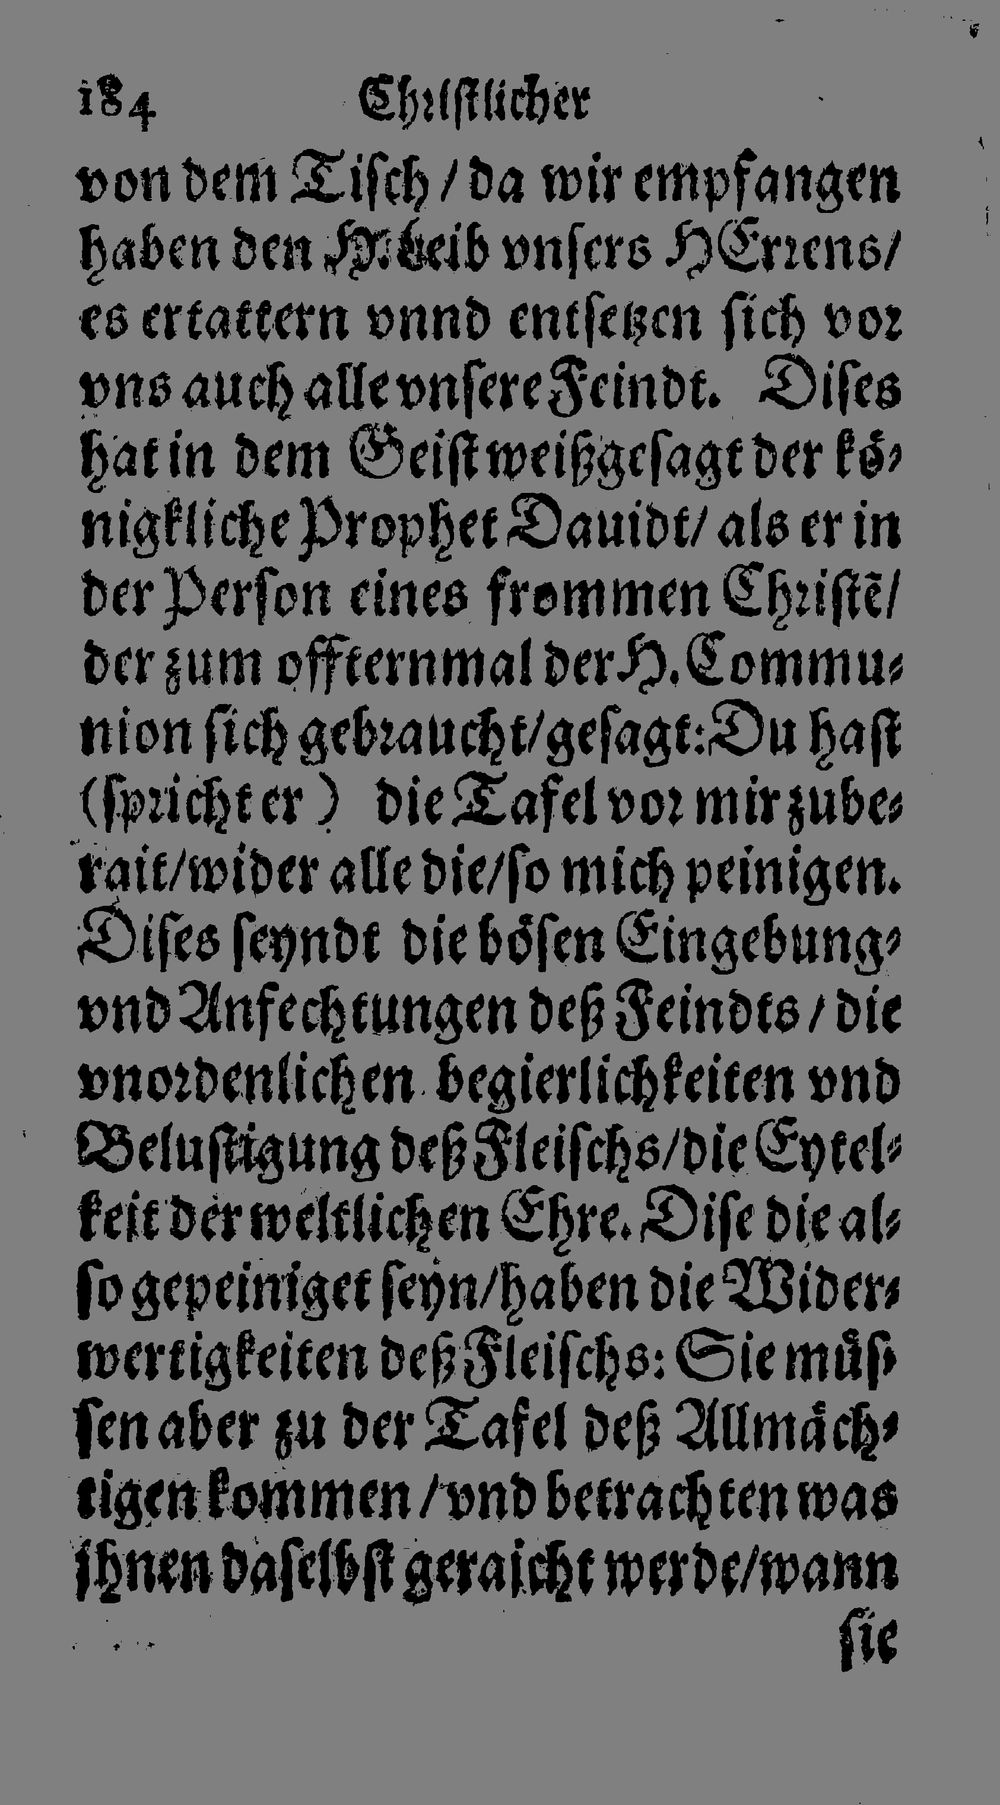 184 Chriſtlicher
von dem Tiſch / da wir empfangen
haben den H. Leib vnſers HErrens /
es ertattern vnnd entſetzen ſich vor
vns auch alle vnſere Feindt. Diſes
hat in dem Geiſt weißgeſagt der kö⸗
nigkliche Prophet Dauidt / als er in
der Perſon eines frommen Chriſtē /
der zum offternmal der H. Commu⸗
nion ſich gebraucht / geſagt: Du haſt
(ſpricht er) die Tafel vor mir zube⸗
rait / wider alle die / ſo mich peinigen.
Diſes ſeyndt die böſen Eingebung⸗
vnd Anfechtungen deß Feindts / die
vnordenlichen begierlichkeiten vnd
Beluſtigung deß Fleiſchs / die Eytel⸗
keit der weltlichen Ehre. Diſe die al⸗
ſo gepeiniget ſeyn / haben die Wider⸗
wertigkeiten deß Fleiſchs: Sie müſ⸗
ſen aber zu der Tafel deß Allmäch⸗
tigen kommen / vnd betrachten was
jhnen daſelbſt geraicht werde / wann
ſie